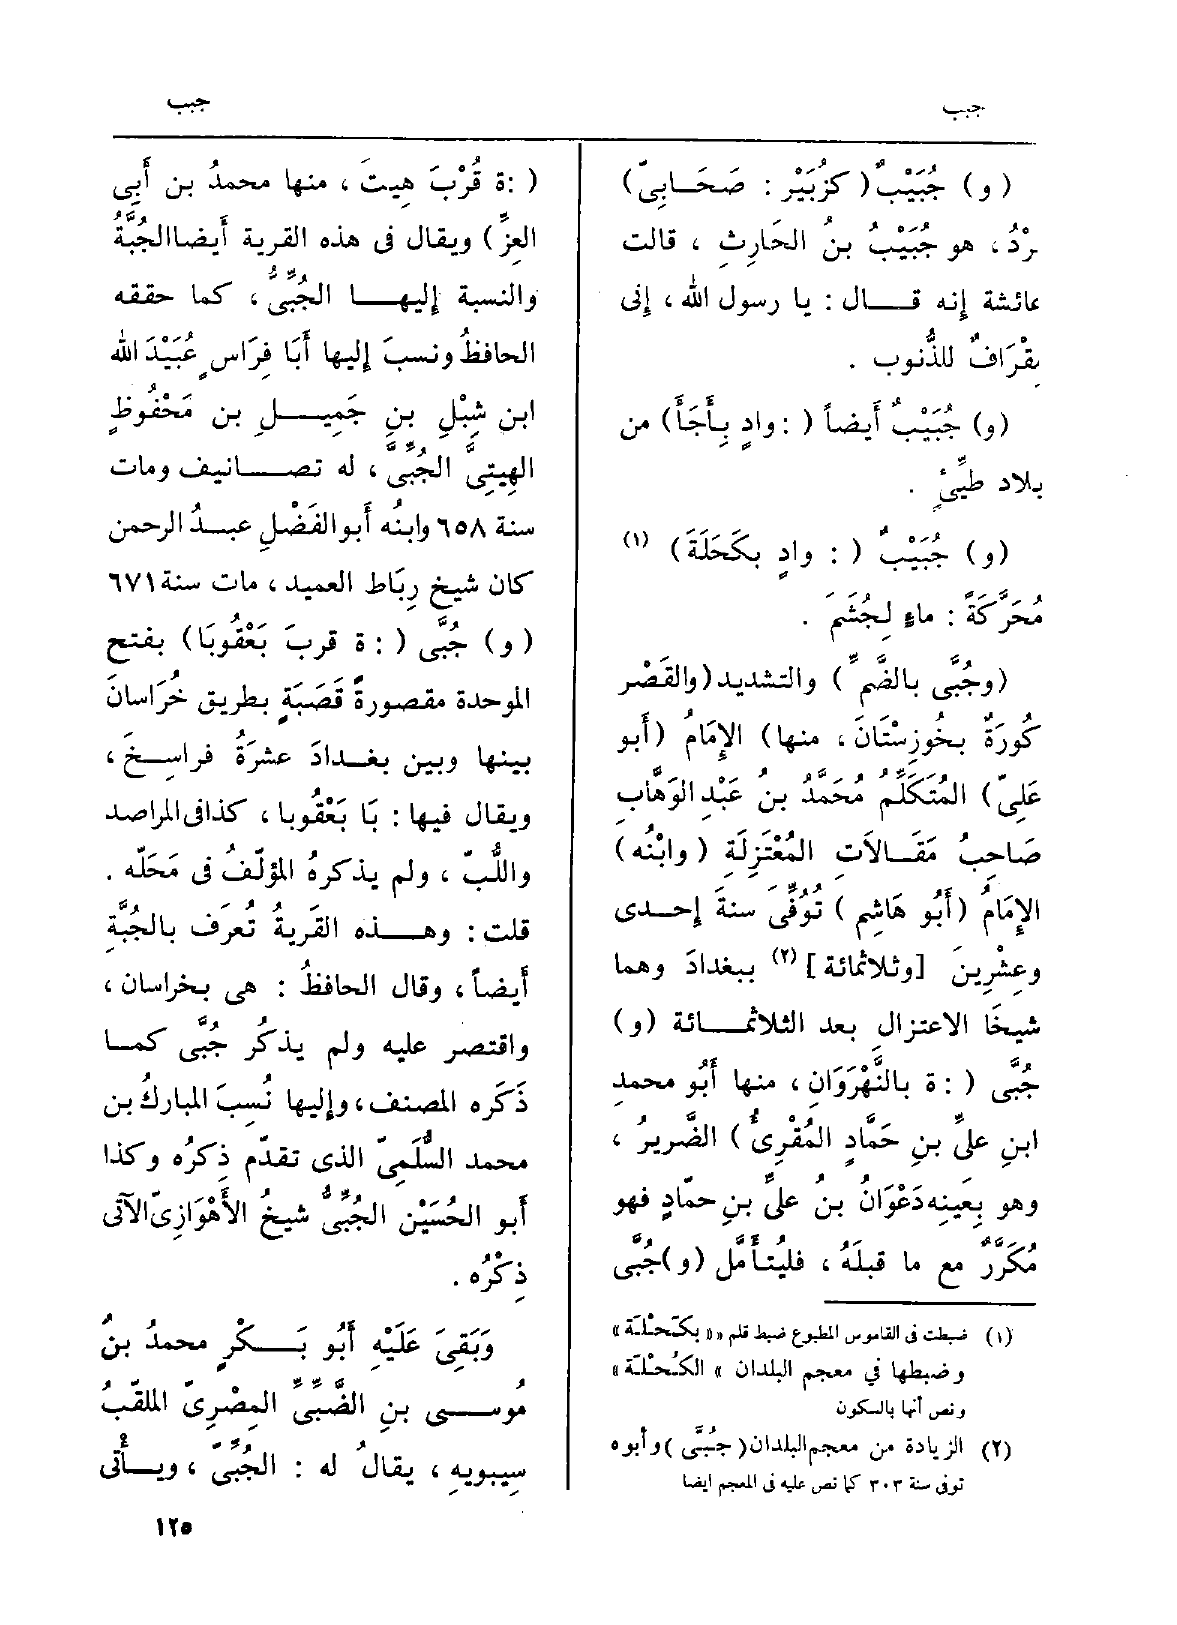 جبب
جبب
(و) جُبَيْبٌ (كزُبَيْر : صَحَابىّ)
هو جُبَيْبُ بنُ الحَارِثِ ، قالت
عائشة إنه قال : يا رسول الله ، إنى
مِقْرَافٌ للذُّنوب .
(و) جُبَيْبٌ أيضاً ( : وادٍ بِأَجَأَ) من
بلاد طَيِّئٍ .
(و) جُبَيْبٌ ( : وادٍ بكَحَلَةَ) (١)
مُحَرَّكَةً : ماءٍ لِجُشَمَ .
(وجُبَّى بالضَّمِّ) والتشديد (والقَصْر
كُورَةٌ بخُوزِسْتَانَ ، منها) الإِمَامُ (أَبو
عَلِىّ) المُتَكَلِّمُ مُحَمَّدُ بنُ عَبْدِ الوَهَّابِ
صَاحِبُ مَقَالاَتِ المُعْتَزِلَةِ (وابْنُه)
الإِمَامُ (أَبُو هَاشِمٍ) تُوُفِّىَ سنةَ إِحدى
وعِشْرِينَ [وثلاثمائة] (٢) ببغدادَ وهما
شيخَا الاعتزالِ بعد الثلاثمائة (و)
جُبَّى ( : ة بالنَّهْرَوَانِ ، منها أَبُو محمدِ
ابنِ علىِّ بنِ حَمَّادٍ المُقْرِىُّ) الضَّريرُ ،
وهو بِعَينِه دَعْوَانُ بنُ علىِّ بنِ حمَّادٍ فهو
مُكَرَّرٌ مع ما قبلَهُ ، فليُتأَمَّل (و) جُبَّى
(١) ضبطت فى القاموس المطبوع ضبط قلم « بكَحْلَة »
وضبطها في معجم البلدان « الكُحْلَة »
ونص أنها بالسكون
(٢) الزيادة من معجم البلدان (جُبَّى) وأبوه
توفى سنة ٣٠٣ كما نص عليه فى المعجم ايضا
( : ة قُرْبَ هِيتَ ، منها محمدُ بن أَبِى
العِزِّ) ويقال فى هذه القرية أَيضا الجُبَّةُ
والنسبة إِليها الجُبِّىُّ ، كما حققه
الحافظُ ونسبَ إِليها أَبَا فِرَاسٍ عُبَيْدَ الله
ابن شِبْلِ بنِ جَمِيلِ بن مَحْفُوظٍ
الهِيتِىَّ الجُبِّىَّ ، له تصانيف ومات
سنة ٦٥٨ وابنُه أَبو الفَضْلِ عبدُ الرحمن
كان شيخ رِبَاط العميد ، مات سنة ٦٧١
(و) جُبَّى ( : ة قربَ بَعْقُوبَا) بفتح
الموحدة مقصورةً قَصَبَةٍ بطريق خُرَاسانَ
بينها وبين بغدادَ عشرَةُ فراسِخَ ،
ويقال فيها : بَا بَعْقُوبا ، كذا فى المراصد
واللُّبّ ، ولم يذكرهُ المؤلِّفُ فى مَحَلّه .
قلت : وهذه القَريةُ تُعرَف بالجُبَّةِ
أَيضاً ، وقال الحافظُ : هى بخراسان ،
واقتصر عليه ولم يذكُر جُبَّى كما
ذَكَره المصنف ، وإِليها نُسِبَ المبارك بن
محمد السُّلَمِىّ الذى تقدّم ذِكرُه وكذا
أَبو الحُسَيْن الجُبِّىُّ شيخُ الأَهْوَازِىّ الآتى
ذِكْرُه .
وَبَقِىَ عَلَيْهِ أَبُو بَكْرٍ محمدُ بنُ
مُوسى بنِ الضَّبِّىِّ المِصْرِىّ الملقّبُ
سِيبويهِ ، يقالُ له : الجُبِّىّ ، ويأْتى
١٢٥